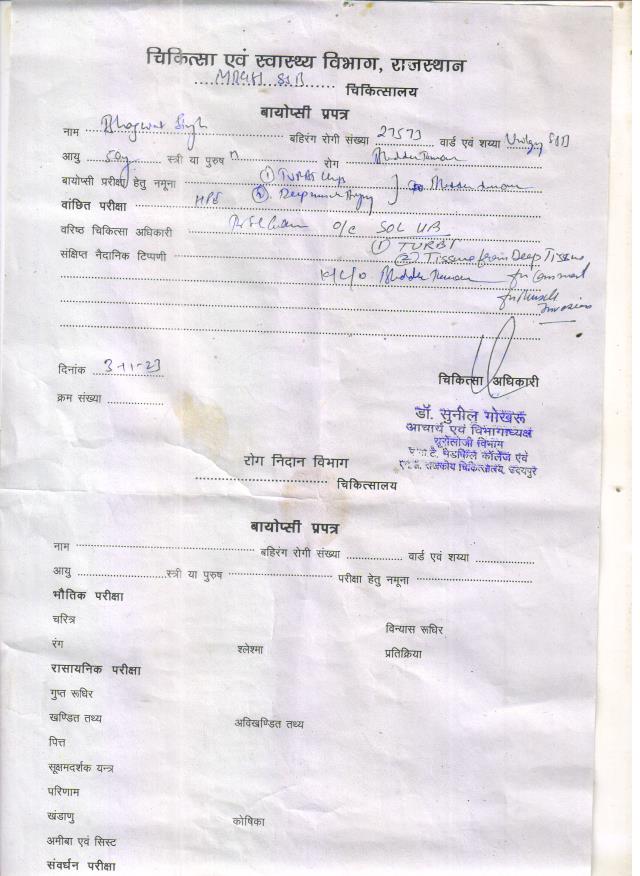 चिकित्सा एवं स्वास्थ्य विभाग, राजस्थान
चिकित्सालय
बायोप्सी प्रपत्र
नाम Bhagwat Singh बहिरंग रोगी संख्या 27573 वार्ड एवं शय्या
आयु 50y स्त्री या पुरुष M रोग Bladder Tumour
बायोप्सी परीक्षा हेतु नमूना ① TURBT chips
वांछित परीक्षा HPE ② Deep muscle
वरिष्ठ चिकित्सा अधिकारी o/c SOL UB
① TURBT
संक्षिप्त नैदानिक टिप्पणी ② Tissue from Deep Tissue
K/C/O Bladder Tumour for Comment
for Muscle
Invasion
दिनांक 3-11-23
चिकित्सा अधिकारी
क्रम संख्या
डॉ. सुनील गोखरू
आचार्य एवं विभागाध्यक्ष
यूरोलॉजी विभाग
मेडिकल कॉलेज एवं
राजकीय चिकित्सालय, उदयपुर
रोग निदान विभाग
चिकित्सालय
बायोप्सी प्रपत्र
नाम बहिरंग रोगी संख्या वार्ड एवं शय्या
आयु स्त्री या पुरुष परीक्षा हेतु नमूना
भौतिक परीक्षा
चरित्र विन्यास रूधिर
रंग श्लेश्मा प्रतिक्रिया
रासायनिक परीक्षा
गुप्त रूधिर
खण्डित तथ्य अविखण्डित तथ्य
पित्त
सूक्षमदर्शक यन्त्र
परिणाम
खंडाणु कोषिका
अमीबा एवं सिस्ट
संवर्धन परीक्षा